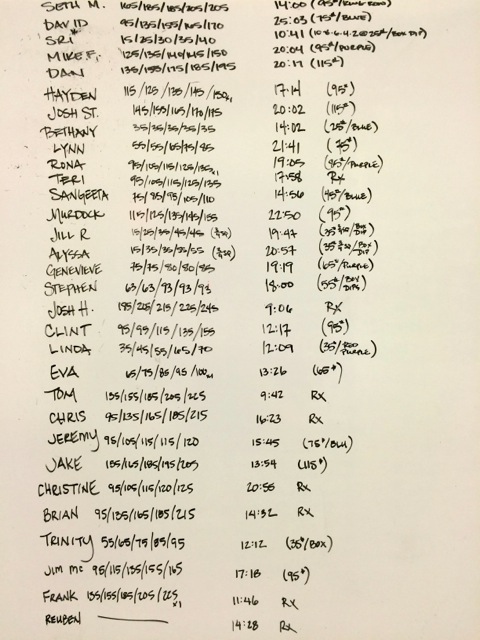 SETH M. 165/185/185/205/205 14:00
DAVID 95/135/155/165/170 25:03 (75#/BLUE)
SRI 15/25/30/35/40 10:41
MIKE F. 125/135/140/145/150 20:04 (95#/PURPLE)
DAN 135/155/175/185/195 20:17 (115#)
HAYDEN 115/125/135/145/150x1 17:14 (95#)
JOSH ST. 145/155/165/170/175 20:02 (115#)
BETHANY 35/35/35/35/35 14:02 (25#/BLUE)
LYNN 55/55/65/75/85 21:41 (75#)
RONA 95/105/115/125/135x1 19:05 (85#/PURPLE)
TERI 95/105/115/125/135 17:58 RX
SANGEETA 75/85/95/105/110 14:56 (45#/BLUE)
MURDOCK 115/125/135/145/155 22:50 (95#)
JILL R 15/25/35/45/45 19:47
ALYSSA 15/35/35/35/55 20:57
GENEVIEVE 75/75/80/80/85 19:19 (65#/PURPLE)
STEPHEN 63/63/93/93/93 18:00 (55#/BOX DIPS)
JOSH H. 185/205/215/225/245 9:06 RX
CLINT 95/95/115/135/155 12:17 (95#)
LINDA 35/45/55/65/70 12:09 (35/RED PURPLE)
EVA 65/75/85/95/100x1 13:26 (65#)
TOM 135/155/185/205/225 9:42 RX
CHRIS 95/135/165/185/215 16:23 RX
JEREMY 95/105/115/115/120 15:45 (75#/BLU)
JAKE 135/165/185/195/205 13:54 (115#)
CHRISTINE 95/105/115/120/125 20:55 RX
BRIAN 95/135/165/185/215 14:32 RX
TRINITY 55/65/75/85/95 12:12 (35#/BOX)
JIM MC 95/115/135/155/165 17:18 (95#)
FRANK 135/155/185/205/225x1 11:46 RX
REUBEN 14:28 RX